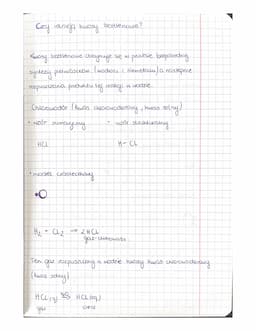 Czy istnieją kwasy beztlenowe?
Kwasy beztlenowe otrzymuje się w postaci bezpośredniej
syntezy pierwiastków (wodoru i niemetalu) a następnie
rozpuszczenia produktu tej reakcji w wodzie.
Chlorowodór (kwas chlorowodorowy, kwas solny)
• wzór sumaryczny • wzór strukturalny
HCl H-Cl
• model cząsteczki
H₂ + Cl₂ → 2HCl
gaz chlorowodór
Ten gaz rozpuszczony w wodzie tworzy kwas chlorowodorowy
(kwas solny)
HCl(g) HCl(aq)
gaz ciecz